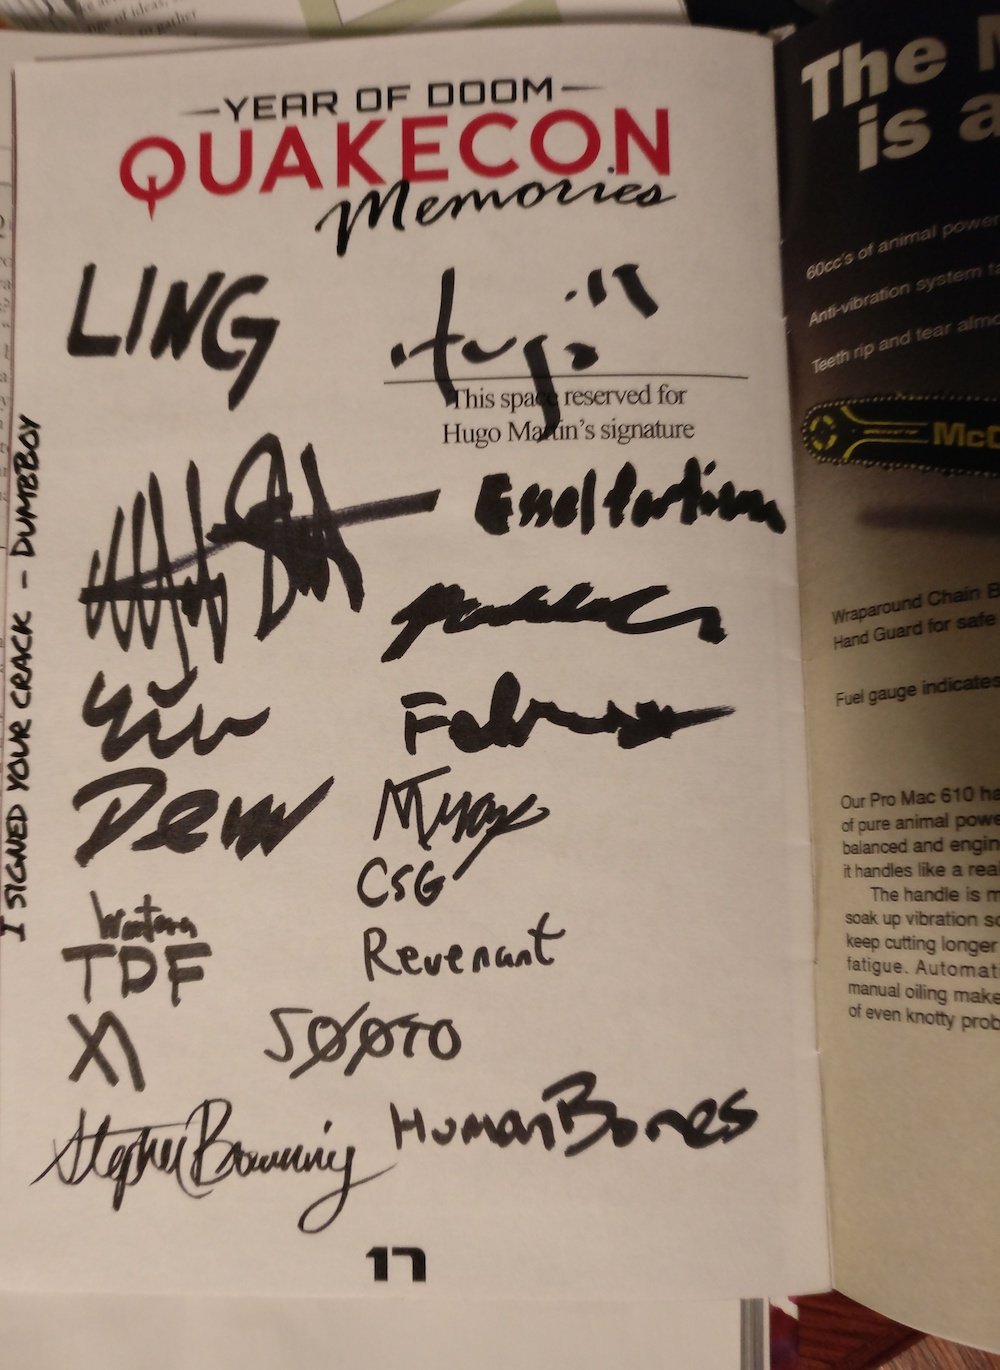 YEAR OF DOOM
QUAKECON
Memories
LING
Hugo
This space reserved for
Hugo Martin's signature
Esselfortium
Dew
CSG
Western
TDF
Revenant
SØØTO
Stephen Browning
HumanBones
17
I SIGNED YOUR CRACK - DUMBBOY
The
is a
60cc's of animal power
Anti-vibration system
Teeth rip and tear
McC
Wraparound Chain B
Hand Guard for safe
Fuel gauge indicates
Our Pro Mac 610 ha
of pure animal powe
balanced and engin
it handles like a rea
The handle is m
soak up vibration so
keep cutting longer
fatigue. Automat
manual oiling make
of even knotty prob
of ideas,
to gather